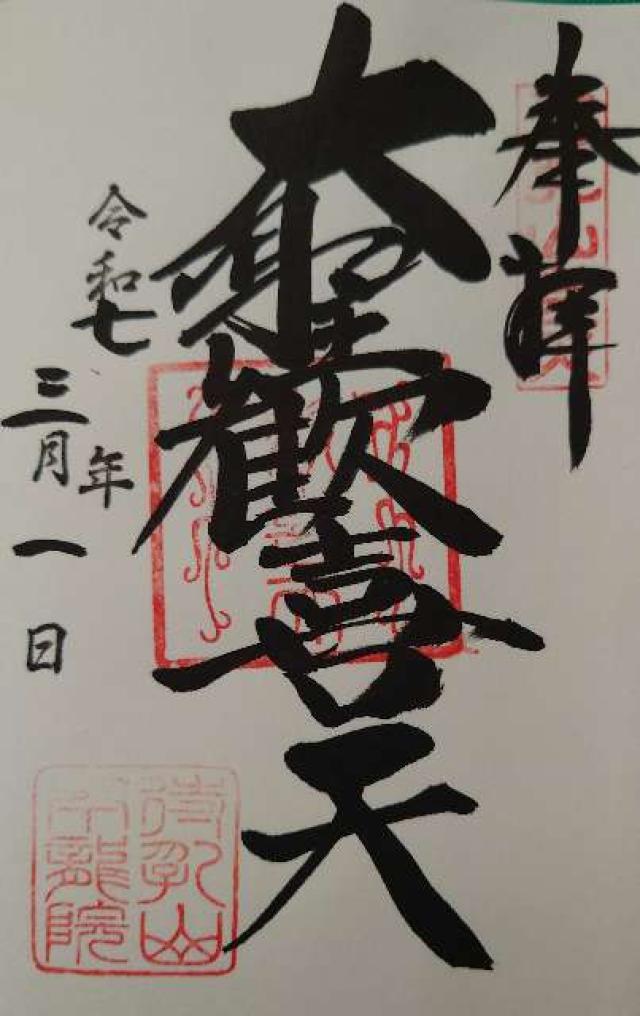 奉拝
大聖歓喜天
令和七年
三月一日
待乳山
本龍院